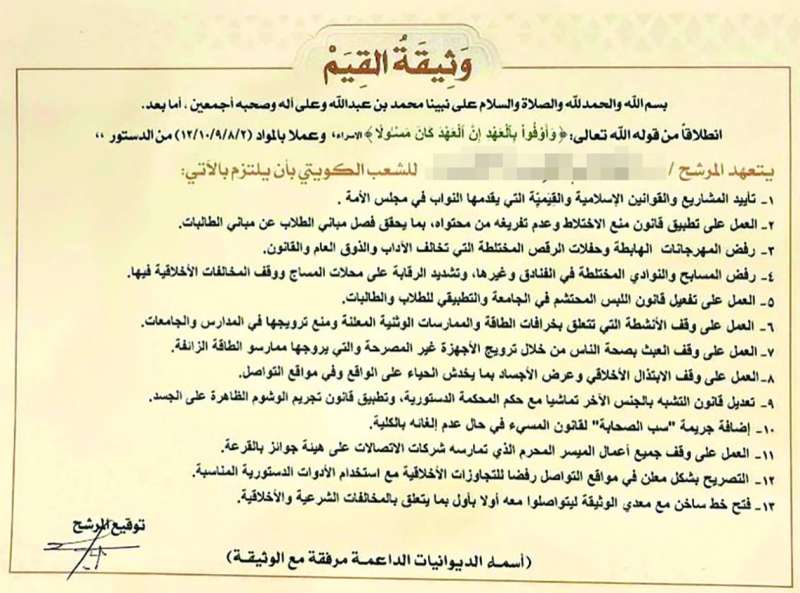 وَثِيقَةُ القِيَمْ
بسم الله والحمدلله والصلاة والسلام على نبينا محمد بن عبدالله وعلى آله وصحبه أجمعين ، أما بعد.
انطلاقاً من قوله الله تعالى: ﴿وَأَوْفُواْ بِٱلْعَهْدِ إِنَّ ٱلْعَهْدَ كَانَ مَسْـُٔولًا﴾ الاسراء، وعملا بالمواد (١٢/١٠/٩/٨/٢) من الدستور ،،
يتعهد المرشح / للشعب الكويتي بأن يلتزم بالآتي:
١- تأييد المشاريع والقوانين الإسلامية والقِيَميّة التي يقدمها النواب في مجلس الأمة .
٢- العمل على تطبيق قانون منع الاختلاط وعدم تفريغه من محتواه، بما يحقق فصل مباني الطلاب عن مباني الطالبات.
٣- رفض المهرجانات الهابطة وحفلات الرقص المختلطة التي تخالف الآداب والذوق العام والقانون.
٤- رفض المسابح والنوادي المختلطة في الفنادق وغيرها، وتشديد الرقابة على محلات المساج ووقف المخالفات الأخلاقية فيها.
٥- العمل على تفعيل قانون اللبس المحتشم في الجامعة والتطبيقي للطلاب والطالبات.
٦- العمل على وقف الأنشطة التي تتعلق بخرافات الطاقة والممارسات الوثنية المعلنة ومنع ترويجها في المدارس والجامعات.
٧- العمل على وقف العبث بصحة الناس من خلال ترويج الأجهزة غير المصرحة والتي يروجها ممارسو الطاقة الزائفة.
٨-العمل على وقف الابتذال الأخلاقي وعرض الأجساد بما يخدش الحياء على الواقع وفي مواقع التواصل.
٩- تعديل قانون التشبه بالجنس الآخر تماشيا مع حكم المحكمة الدستورية، وتطبيق قانون تجريم الوشوم الظاهرة على الجسد.
١٠- إضافة جريمة "سب الصحابة" لقانون المسيء في حال عدم إلغائه بالكلية.
١١- العمل على وقف جميع أعمال الميسر المحرم الذي تمارسه شركات الاتصالات على هيئة جوائز بالقرعة.
١٢- التصريح بشكل معلن في مواقع التواصل رفضا للتجاوزات الأخلاقية مع استخدام الأدوات الدستورية المناسبة.
١٣- فتح خط ساخن مع معدي الوثيقة ليتواصلوا معه أولا بأول بما يتعلق بالمخالفات الشرعية والأخلاقية.
توقيع المرشح
(أسمه الديوانيات الداعمة مرفقة مع الوثيقة)